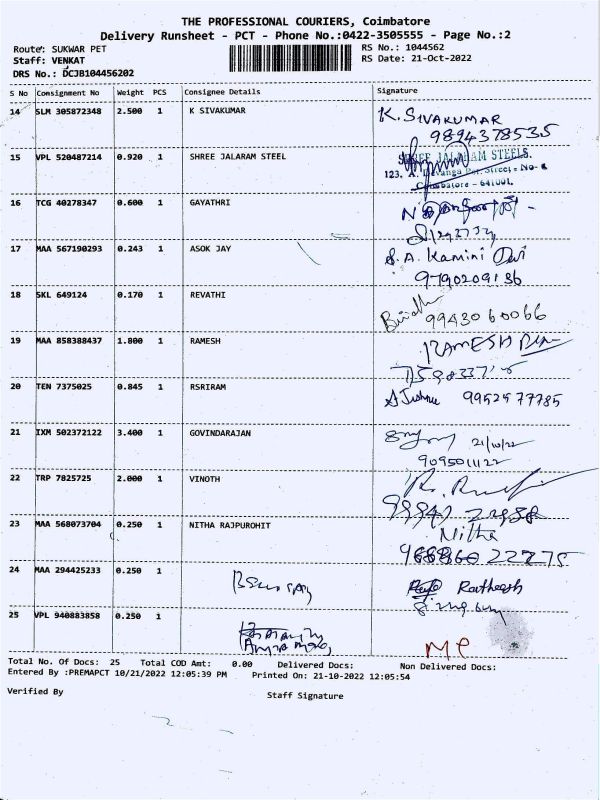 THE PROFESSIONAL COURIERS, Coimbatore
Delivery Runsheet - PCT - Phone No.:0422-3505555 - Page No.:2
Route: SUKWAR PET
RS No.: 1044562
Staff: VENKAT
RS Date: 21-Oct-2022
DRS No.: DCJB104456202
S No Consignment No Weight PCS Consignee Details Signature
14 SLM 305872348 2.500 1 K SIVAKUMAR K. SIVAKUMAR
9894378535
15 VPL 520487214 0.920 1 SHREE JALARAM STEEL SHREE JALARAM STEELS.
123, A. Street - No-
Coimbatore - 641001.
16 TCG 40278347 0.600 1 GAYATHRI
17 MAA 567190293 0.243 1 ASOK JAY S. A. Kamini Devi
9790209136
18 SKL 649124 0.170 1 REVATHI
9943060066
19 MAA 858388437 1.800 1 RAMESH RAMESH
20 TEN 7375025 0.845 1 RSRIRAM 9952577785
21 IXM 502372122 3.400 1 GOVINDARAJAN 21/10/22
9095011122
22 TRP 7825725 2.000 1 VINOTH
23 MAA 568073704 0.250 1 NITHA RAJPUROHIT Nitha
24 MAA 294425233 0.250 1 Ratheesh
25 VPL 940883858 0.250 1
Total No. Of Docs: 25 Total COD Amt: 0.00 Delivered Docs: Non Delivered Docs:
Entered By :PREMAPCT 10/21/2022 12:05:39 PM Printed On: 21-10-2022 12:05:54
Verified By Staff Signature